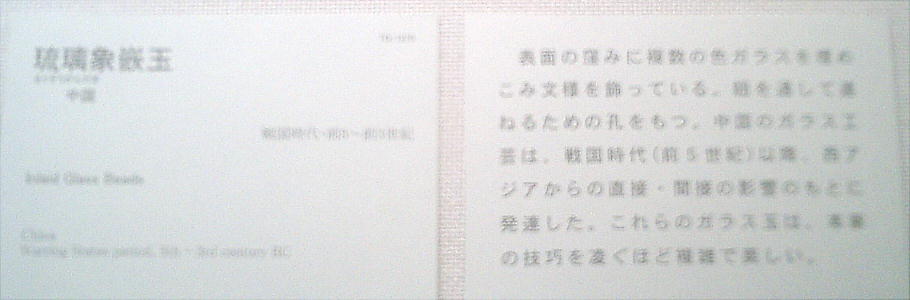 琉璃象嵌玉
中国
戦国時代・前5～前3世紀
Inlaid Glass Beads
China
Warring States period, 5th - 3rd century BC
表面の窪みに複数の色ガラスを埋め
こみ文様を飾っている。紐を通して連
ねるための孔をもつ。中国のガラス工
芸は、戦国時代(前5世紀)以降、西ア
ジアからの直接・間接の影響のもとに
発達した。これらのガラス玉は、本家
の技巧を凌ぐほど複雑で美しい。